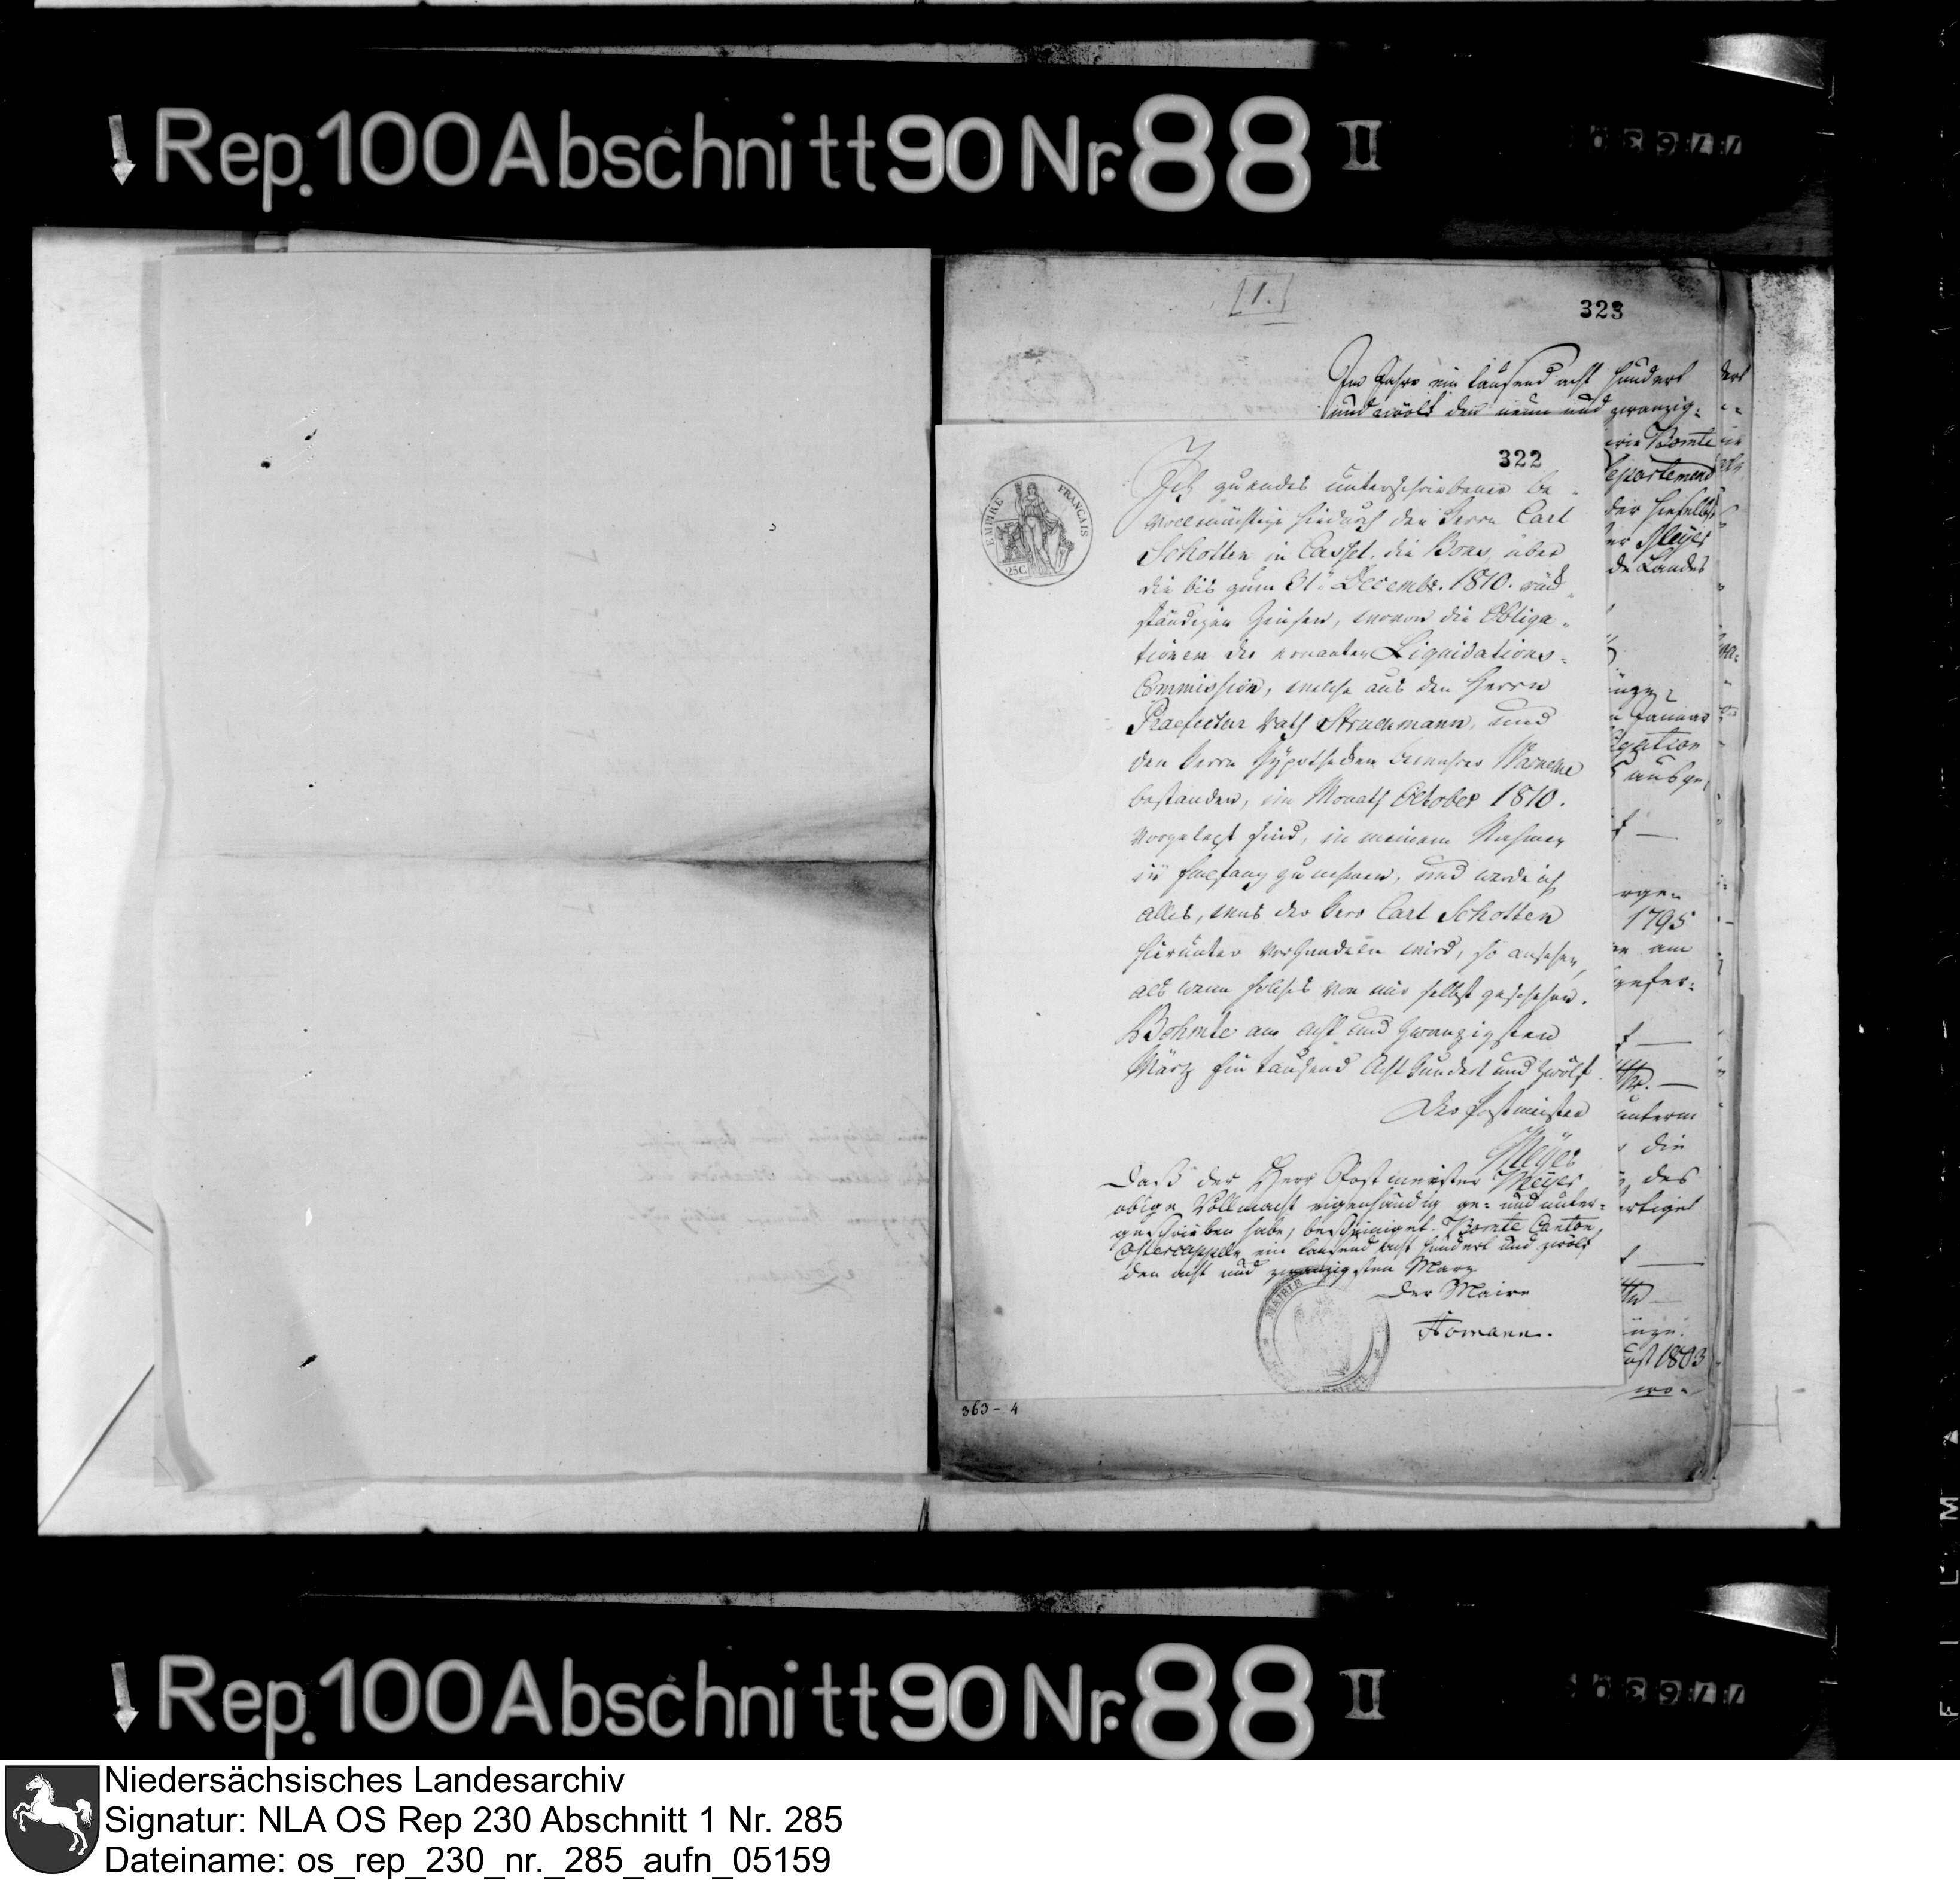 Rep. 100 Abschnitt 90 Nr. 88 II
77630
[1.]
323
Im Jahre ein tausend acht hundert
und zwölf den neun und zwanzig-
322
EMPIRE FRANÇAIS
25C
Ich zu endes unterschriebener be-
vollmächtige hiedurch den Herrn Carl
Scholten in Cassel, die Bons, über
die bis zum 31. Decembr. 1810. rück-
ständigen Zinsen, wovon die Obliga-
tionen der ernanten Liquidations-
Commission, welche aus den Herrn
Praefectur Rath Struckmann, und
den Herrn Hypotheken Bewahrer Warnecke
bestanden, im Monath October 1810.
vorgelegt sind, in meinem Nahmen
in Empfang zu nehmen, und werde ich
alles, was der Herr Carl Scholten
hierunter verhandeln wird, so ansehen,
als wenn solches von mir selbst geschehen.
Bohmte am acht und zwanzigsten
März Ein tausend Acht hundert und zwölf
Der Postmeister
Meyer
Daß der Herr Postmeister Meyer
obige Vollmacht eigenhändig ge- und unter-
geschrieben habe, bescheiniget. Bomte Canton
Ostercappeln ein tausend acht hundert und zwölf
den acht und zwanzigsten Marz
Der Maire
Homann.
MAIRIE
Bomte
epartement
der hieselbst
er Meyer
de Landes
n Januar
igation
ausge-
rgen
1795
am
gefer-
unterm
die
des
ertiget
ust 1803
wo-
363-4
Rep. 100 Abschnitt 90 Nr. 88 II
77630
FILM
Niedersächsisches Landesarchiv
Signatur: NLA OS Rep 230 Abschnitt 1 Nr. 285
Dateiname: os_rep_230_nr._285_aufn_05159